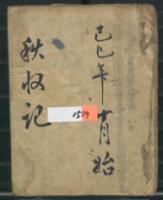 己巳年十月始
秋收记
1579